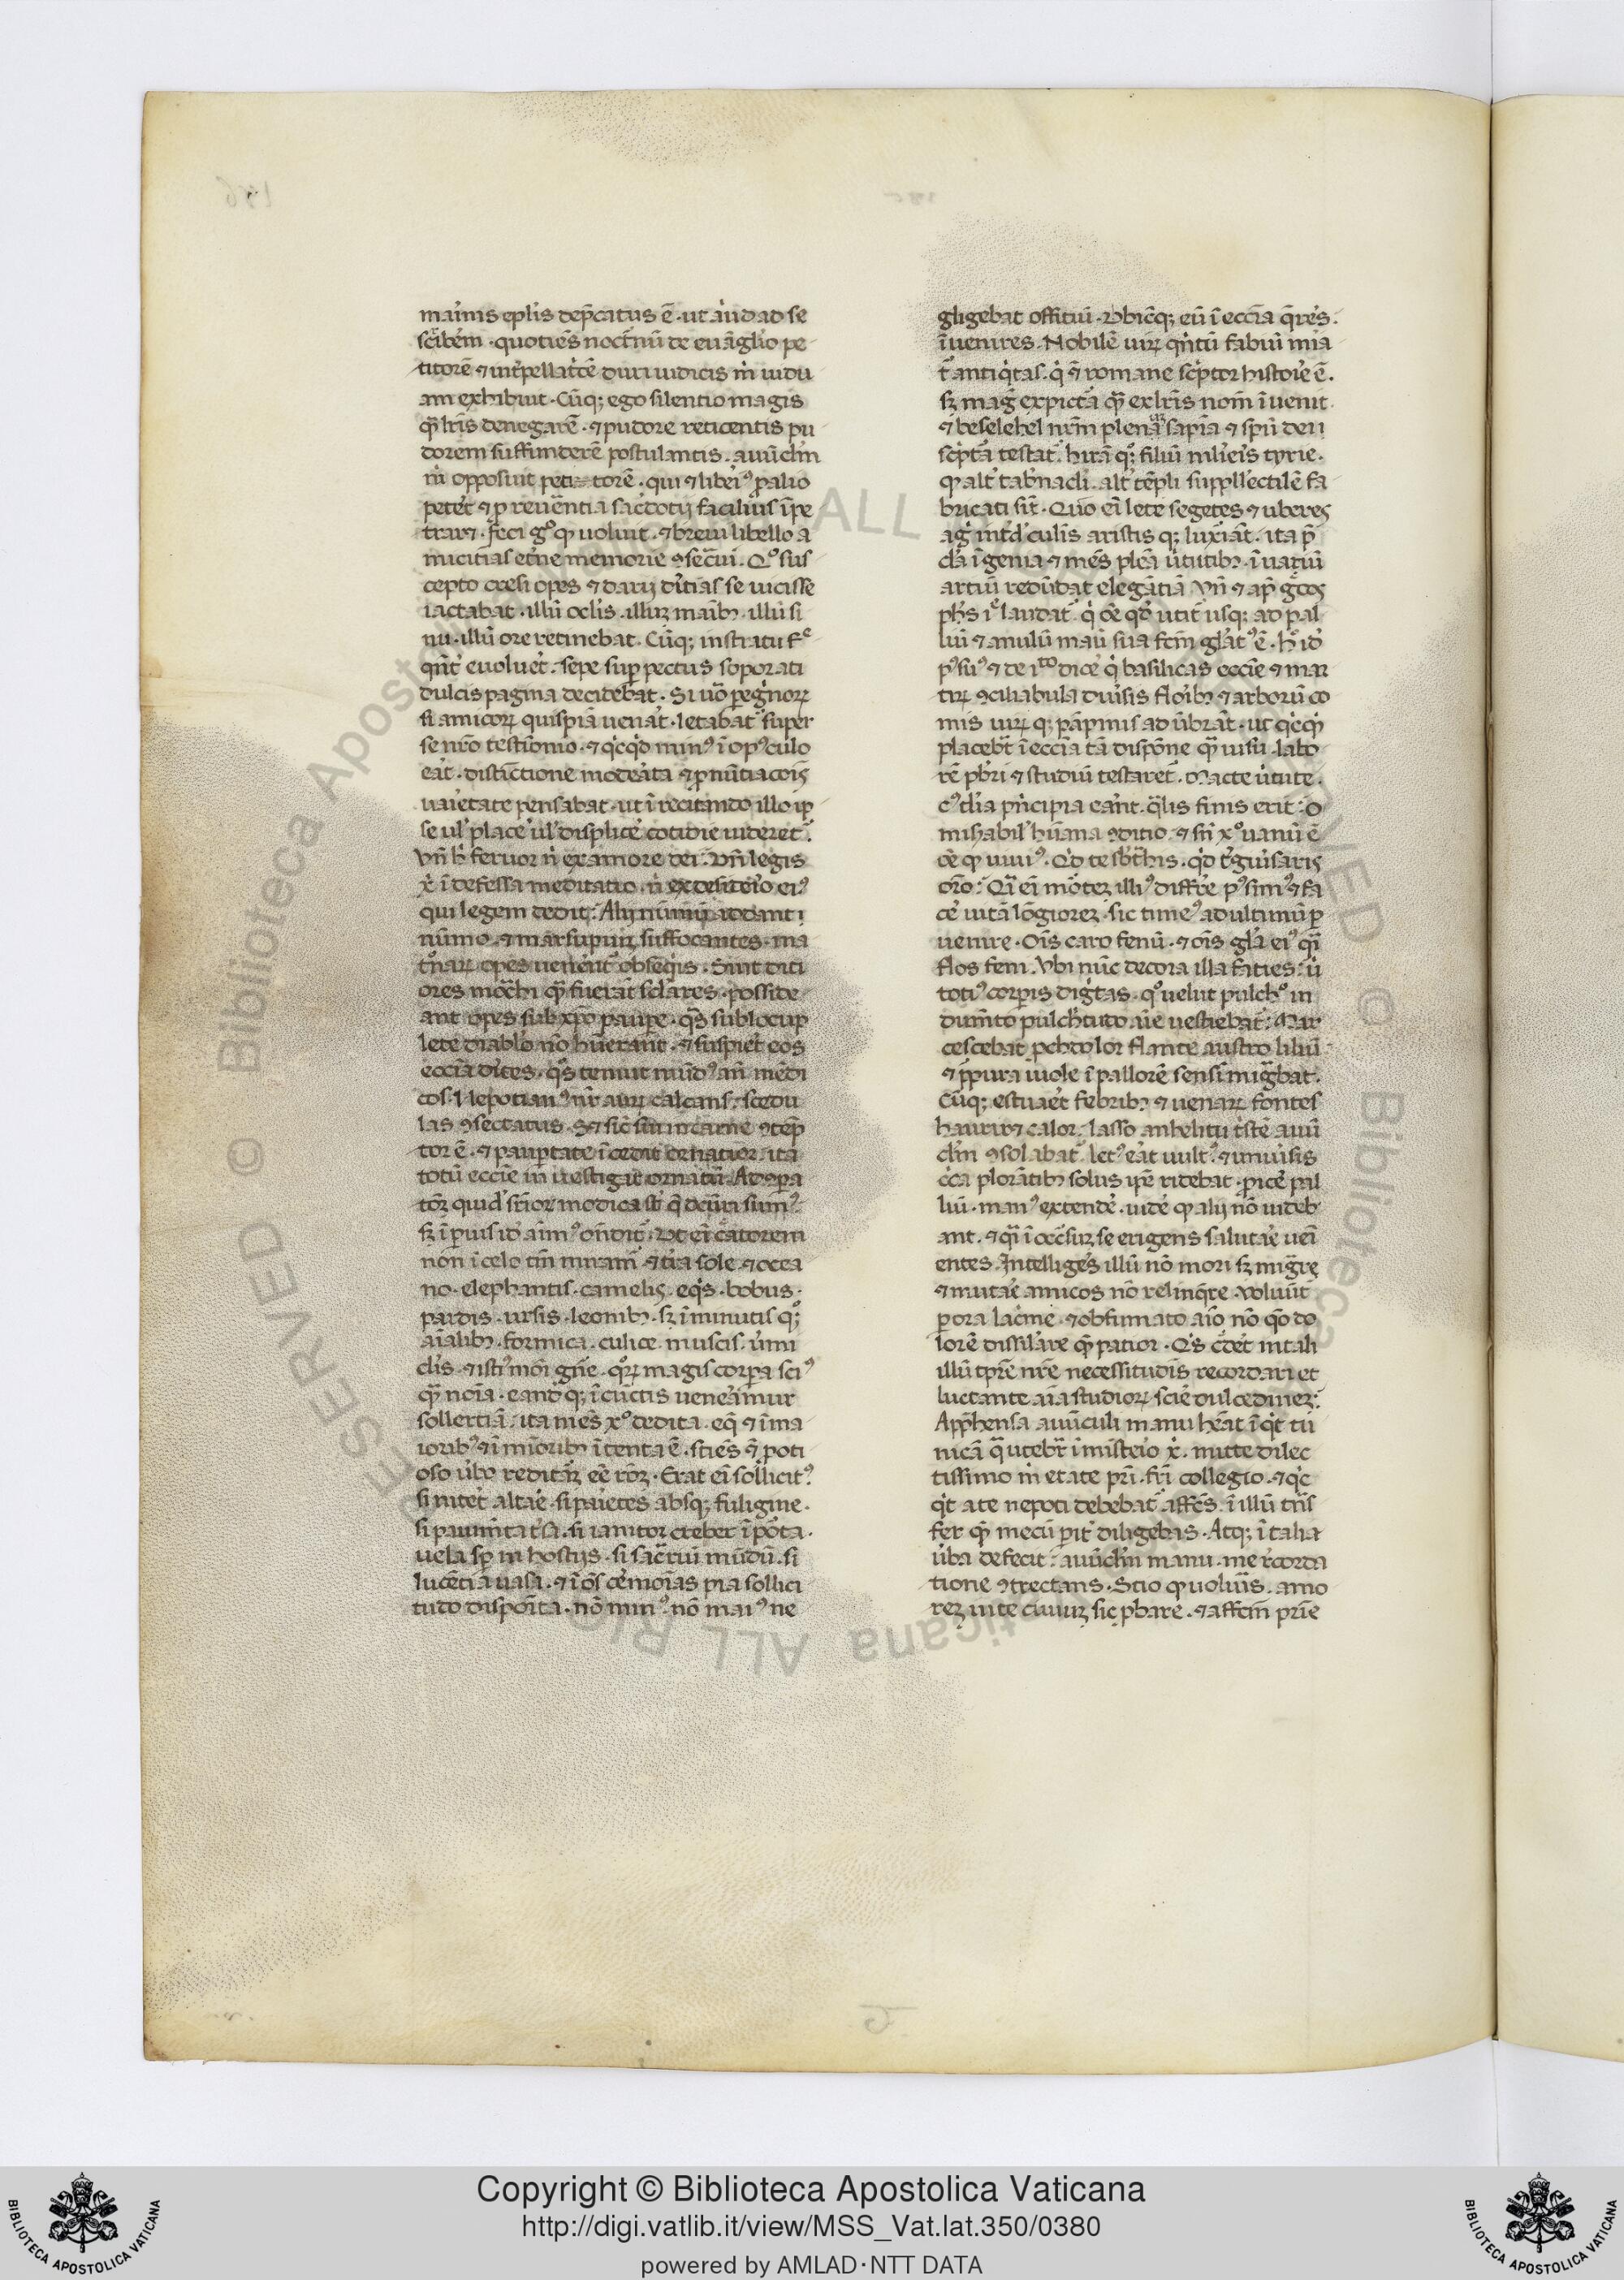 mai᷑nis epl̄is dep̄catus ē · ut ali᷑d ad se
sc̄berem · quotiēs noct̄nū de euāglio pe
titorē ⁊ int̄pellat̄cē duri iudicis m̄ uidu
am exhibuit · Cūq; ego silentio magis
qͣ̄ lr̄is denegarē · ⁊ pudore reticentis pu
dorem suffunderē postulantis · auūcl̄m
m̄ opposuit petitorē · qui ⁊ libeī᾽ p̄ alio
petet ⁊ p reuēntia sac̄dotij facilius īpe
traret · feci g° qd̄ uoluit · ⁊ breui libello a
micitias etn̄e memorie ꝯsec̄ui · Q° sus
cepto cresi opes ⁊ darij d̄itias se uicisse
iactabat · illū oclīs · illuꝫ maībꝫ · illū si
nu · illū ore retinebat · Cūq; instratu
qn̄t euoluet · sepe sup pectus soporati
dulcis pagina decidebat · Si uō peg̓noꝝ
si amicoꝝ quispiā uenat · letabat᷑ super
se nrō testīonio · ⁊ qcqd min᾽ ī op᾽culo
eat · distinctione modeata ⁊ p̄nūtiacōis
uai᷑etate pensabat · ut ī recitando illo ip
se ul̓ place ul̓ displice cotidie uideret᷑ ·
Vn̄ h̓ feruor n̄ ex amore dei · Vn̄ legis
x̄ ī defessa meditatio · n̄ ex desideīo ei᾽
qui legem dedit · Alij nūmū addant
nūmo · ⁊ marsupiuꝫ suffocantes · ma
tonaꝝ opes uenent᷑ obseqīs · Sint diti
ores mōchi qͣ̄ fuerāt sclāres · posside
ant opes sub xp̄o paupe · qͣs sub locup
lete diablō nō huerant · ⁊ suspiet eos
eccīa dites · qͦs tenuit mūd᾽ an̄ mēdi
cos · Nepotian᾽ nr̄ auꝝ calcans · scedu
las ꝯsectatus · S⁊ sic̄ sui in carne ꝯtēp
tor ē · ⁊ paup̄tate īcedit ornatior · ita
totū eccīe inuestigat ornatū · Ad ꝯpa
toꝝ quid̓ srīoꝝ modica st̄ q̄ dc̄uri sum᾽ ·
sꝫ ī paruis id̓ aim᾽ on̄dit᷑ · Vt eī c̄atorem
non ī celo tm̄ miram᷑ · ⁊ t̄ra sole · ⁊ ocea
no · elephantis · camelis · eqis · bobus ·
pardis · ursis · leonibꝫ · sꝫ ī minutis qͦ;
aīalibꝫ · formica · culice · muscis · u᷑mi
cl̄is · ⁊ isti᾽mōi gn̄e · qͦꝝ magis corpa sci᾽
qͣ̄ noīa · eand̓q; ī cūctis uenēamur
sollertiā · ita mēs x° dedita · eq̄ ⁊ ī ma
iorib᾽ ⁊ ī mīoribꝫ ītenta ē · sciēs ⁊ p̄ oti
oso u᷑bo redituꝝ eē rōꝫ · Erat eī sollicit᾽
si nitet altae · si paietes absq; fuligine ·
si pauimtat᷑sa · si ianitor creber ī pōta ·
uela sp in hostijs · si sac̄riū mūdū · si
lucētia uasa · ⁊ ī oēs cēmoīas pia sollici
tudo disposita · nō min᾽ · nō mai᾽ ne
gligebat offitiū · Vbicūq; eū ī eccīa q̄res ·
īuenires · Nobilē uiꝝ qn̄tū fabiū mia
t᷑ antiqͥtas · qͥ ⁊ romane sc̄ptor historie ē ·
sꝫ mag᷑ expictā qͣ̄ ex lrīs nom̄ īuenit ·
⁊ beselehel nr̄m plenā sapīa ⁊ sp̄u dei
sc̄pta testat᷑ · hirā qͦ; filiū mli᷑eis tyrie ·
qd̄ alt᷑ tab̓nacli · alt᷑ tēpli suppllectilē fa
bricati sīt · Quō eī lete segetes ⁊ uberes
ag᷑ int᷑d̓ culīs aristis q; luxiāt · ita p̄
clā īgenia ⁊ mēs plēa u᷑tutibꝫ · ī uariū
artiū redūdat elegātiā Vn̄ ⁊ ap̄ g̓cos
ph̄s ie laudat᷑ · qͥ oē qd̄ utit᷑ usq; ad pal
liū ⁊ anulū manū sua fcm̄ gl̄at᾽ ē · h° id̓
p᾽sū᾽ ⁊ de ito dice qͥ basilicas eccīe ⁊ mar
tiꝝ ꝯciliabula diu᷑sis floībꝫ ⁊ arboꝝ co
mis uiꝝ q; pāpinis ad ūbrāt · ut qͥcqd̄
placebt᷑ ī eccīa tā dispōne qͣ̄ uisu · labo
rē pbr̄i ⁊ studiū testaret᷑ · Macte u᷑tute ·
c᾽ tl̄ia pn̄cipia eant · qͣlis finis erit · O
miserabil̓ hūana ꝯditio · ⁊ sn̄ x° uanū ē
oē qd̄ uiui᾽ · Qd̓ te sbt᷑his · qd̓ t᷑giu᷑saris
orō · Qͣi eī mōteꝫ illi᾽ diffr̄e p᾽sim᾽ ⁊ fa
ce uitā lōgioreꝫ · sic time᾽ ad ultimū p
uenire · Oīs caro fenū · ⁊ oīs gl̄a ei᾽ qͣi
flos feni · Vbi nūc decora illa faties · u᷑
toti᾽ corpis dig̓tas · qͦ uelut pulch° in
dumto pulch̓tudo aīe uestiebat᷑ · Mar
cescebat pchdolor flante austro liliū
⁊ p̄pura uiole ī pallorē sensi᷑ migͣbat ·
Cūq; estuaet febribꝫ ⁊ uenaꝝ fontes
haurir⁊ calor · lasso anhelitu t᷑stē auū
cl̄m ꝯsolabat᷑ · let᾽ eat uult᾽ · ⁊ uniu᷑sis
c᷑ca plorātibꝫ solus ip̄e ridebat · p̄icē pal
liū · man᾽ extendē · uidē qd̄ alij nō uideb
ant · ⁊ qͣi ī occ᷑suꝫ se erigens salutae uei᷑
entes · Intelliges illū nō mori sꝫ migͣre
⁊ mutae amicos nō relinq̄re · Voluūt᷑
p ora lac̄me · ⁊ obfirmato aīo nō qͦ do
lorē dissilare qͣ̄ patior · Qͥs c᷑det in tali
illū tpr̄e nr̄e necessitudīs recordari et
luctante aīa studioꝝ scie dulcedineꝫ ·
App̄hensa auūculi manu heāt īqͥt tu
nicā qͣ utebr̄ ī misteīo x̄ · mitte dilec
tissimo m̄ etate pr̄i · frī collegio · ⁊ qͥc
qͥd a te nepoti debebat᷑ affc̄s · ī illū tn̄s
fer qͣ̄ mecū pit᷑ diligebas · Atq; ī talia
u᷑ba defecit · auūclm̄ manu · me r̓corda
tione ꝯtrectans · Scio qd̄ uoluis̄ · amo
reꝫ in te ciuiuꝫ sic pbare · ⁊ affcm̄ prīe